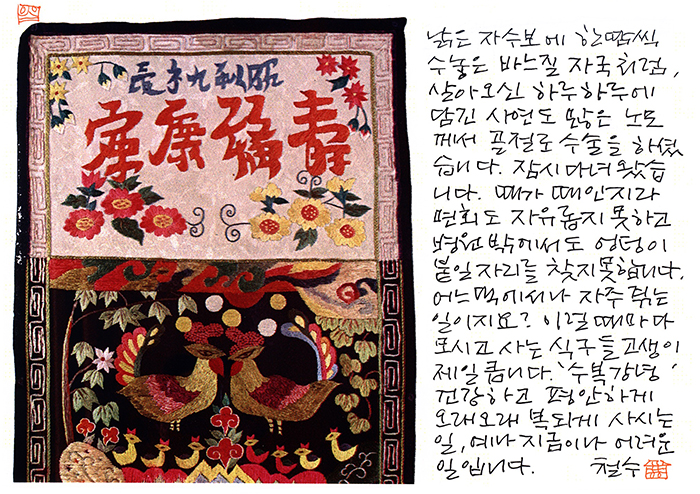 昭和九
壽福康寧
낡은 자수보에 한땀씩
수놓은 바느질 자국처럼,
살아오신 하루하루에
담긴 사연도 많은 노모
께서 골절로 수술을 하셨
습니다. 잠시 다녀왔습
니다. 때가 때인지라
면회도 자유롭지 못하고
병원 밖에서도 엉덩이
붙일 자리를 찾지 못합니다.
어느 댁에서나 자주 겪는
일이지요? 이럴 때마다
모시고 사는 식구들 고생이
제일 큽니다. '수복강녕'
건강하고 평안하게
오래오래 복되게 사시는
일, 예나 지금이나 어려운
일입니다. 철수